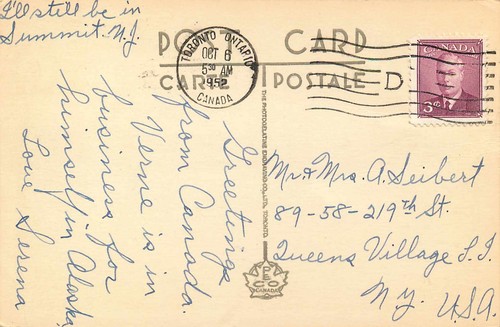 I'll still be in
Summit. N.J.
POST CARD
CARTE POSTALE
TORONTO ONTARIO
OCT 6
5 30 AM
1952
CANADA
D
CANADA
3
Greetings
from Canada.
Verne is in
business for
himself in Alaska
Love Serena
THE PHOTOGELATINE ENGRAVING CO., LTD., TORONTO
PECO
CANADA
Mr & Mrs. A. Seibert
89-58-219th St.
Queens Village L.I.
N.Y. U.S.A.